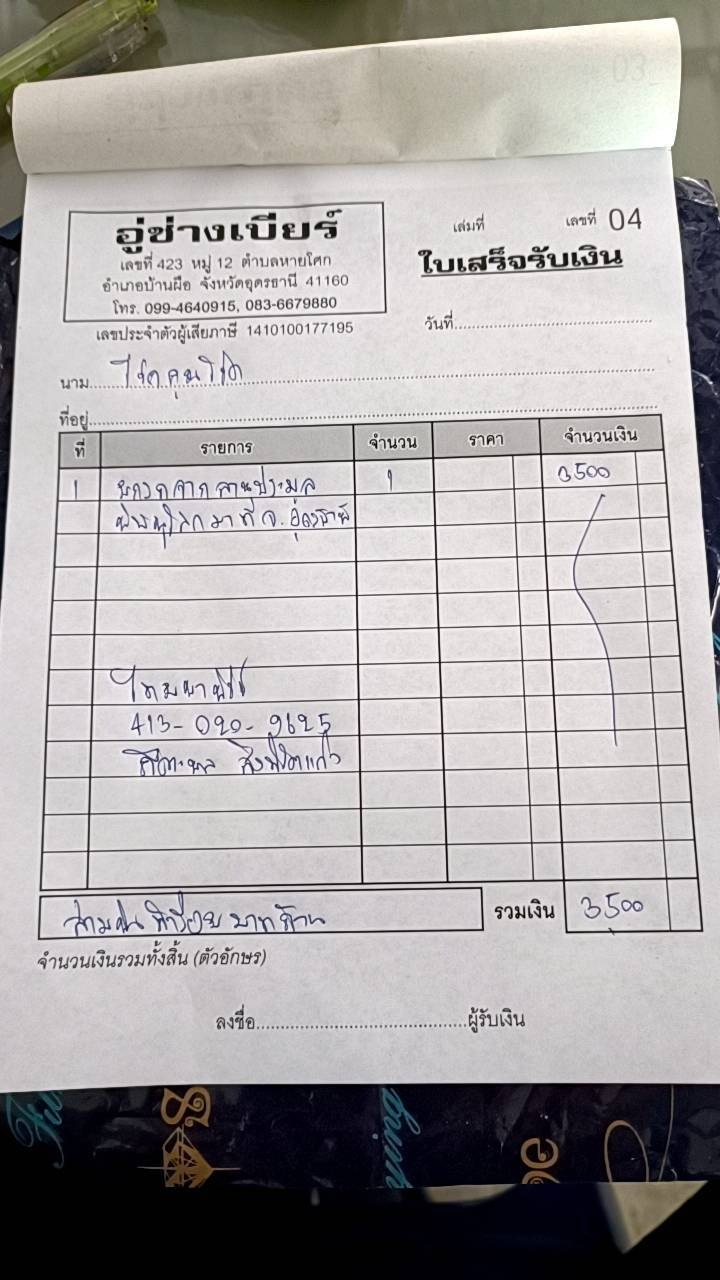 อู่ช่างเบียร์
เลขที่ 423 หมู่ 12 ตำบลหายโศก
อำเภอบ้านผือ จังหวัดอุดรธานี 41160
โทร. 099-4640915, 083-6679880
เลขประจำตัวผู้เสียภาษี 1410100177195
เล่มที่ เลขที่ 04
ใบเสร็จรับเงิน
วันที่
นาม
ที่อยู่
ที่ รายการ จำนวน ราคา จำนวนเงิน
1 จากลานประมูล 1 3500
พิษณุโลกมาที่ จ.อุดรธานี
413-020-9625
สามพันห้าร้อยบาทถ้วน รวมเงิน 3,500
จำนวนเงินรวมทั้งสิ้น (ตัวอักษร)
ลงชื่อ ผู้รับเงิน